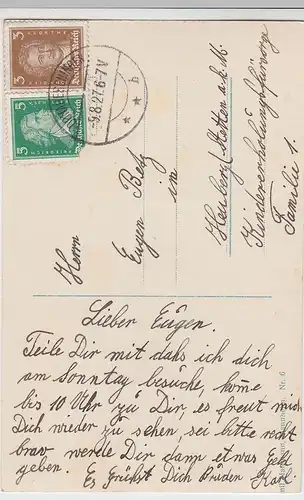 GOETHE
3 Deutsches Reich 3
SCHILLER
5 Deutsches Reich 5
-9.8.27.6-7V
* * b
Herrn
Eugen
im
Heuberg (Stetten a.k.M.
Kindererholungsfürsorge
Familie 1.
Lieber Eugen.
Teile Dir mit dahs ich dich
am Sonntag besuche, kome
bis 10 Uhr zu Dir, es freut mich
Dich wieder zu sehen, sei bitte recht
brav werde Dir dann etwas Geld
geben. Es Grüßt Dich Brüder Karl
Nr. 6